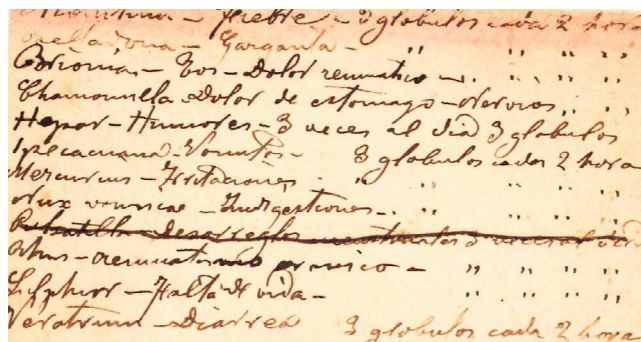 Aconitum - Fiebre - 3 globulos cada 2 hora
Belladona - Garganta - " " " "
Brionia - Tos - Dolor reumatico - " " " "
Chamomilla Dolor de estomago - Nervios " " "
Hepar - Humores - 3 veces al dia 3 globulos
Ipecacuana - Vomitos - 3 globulos cada 2 hora
Mercurius - Irritaciones - " " " " "
Nux vomicae - Indigestiones - " " " " "
Pulsatilla desarreglos menstruales 3 veces al dia
Rhus - reumatismo cronico - " " " "
Sulphur - Falta de vida - " " " "
Veratrum - Diarrea 3 globulos cada 2 hora